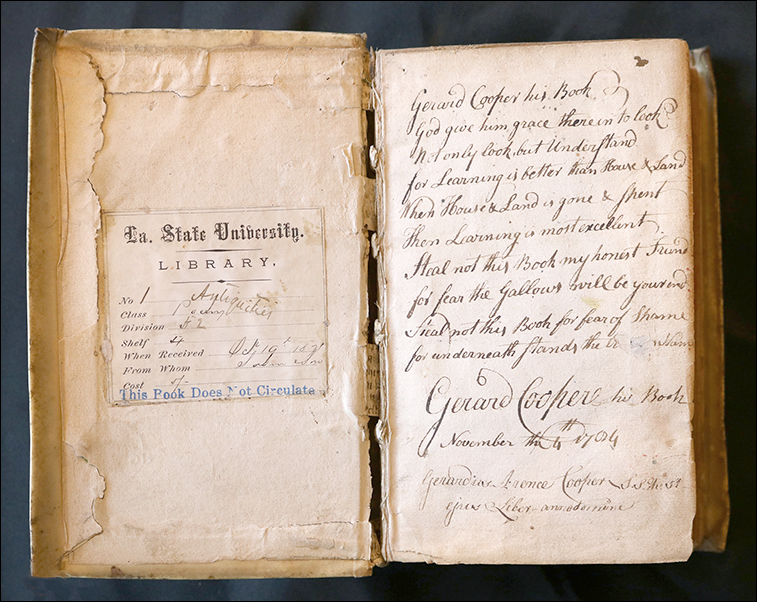 La. State University.
LIBRARY.
No 1 Antiquities
Class
Division
Shelf 4
When Received Oct 19
From Whom
Cost
This Book Does Not Circulate
Gerard Cooper his Book
God give him grace therein to look
Not only look, but Understand
for Learning is better than House & Land
When House & Land is gone & Spent
Then Learning is most excellent
Steal not this Book my honest Friend
for fear the Gallows will be your end.
Steal not this Book for fear of Shame
for underneath Stands the
Gerard Cooper his Book
November the 4th
Cooper
ejus Liber